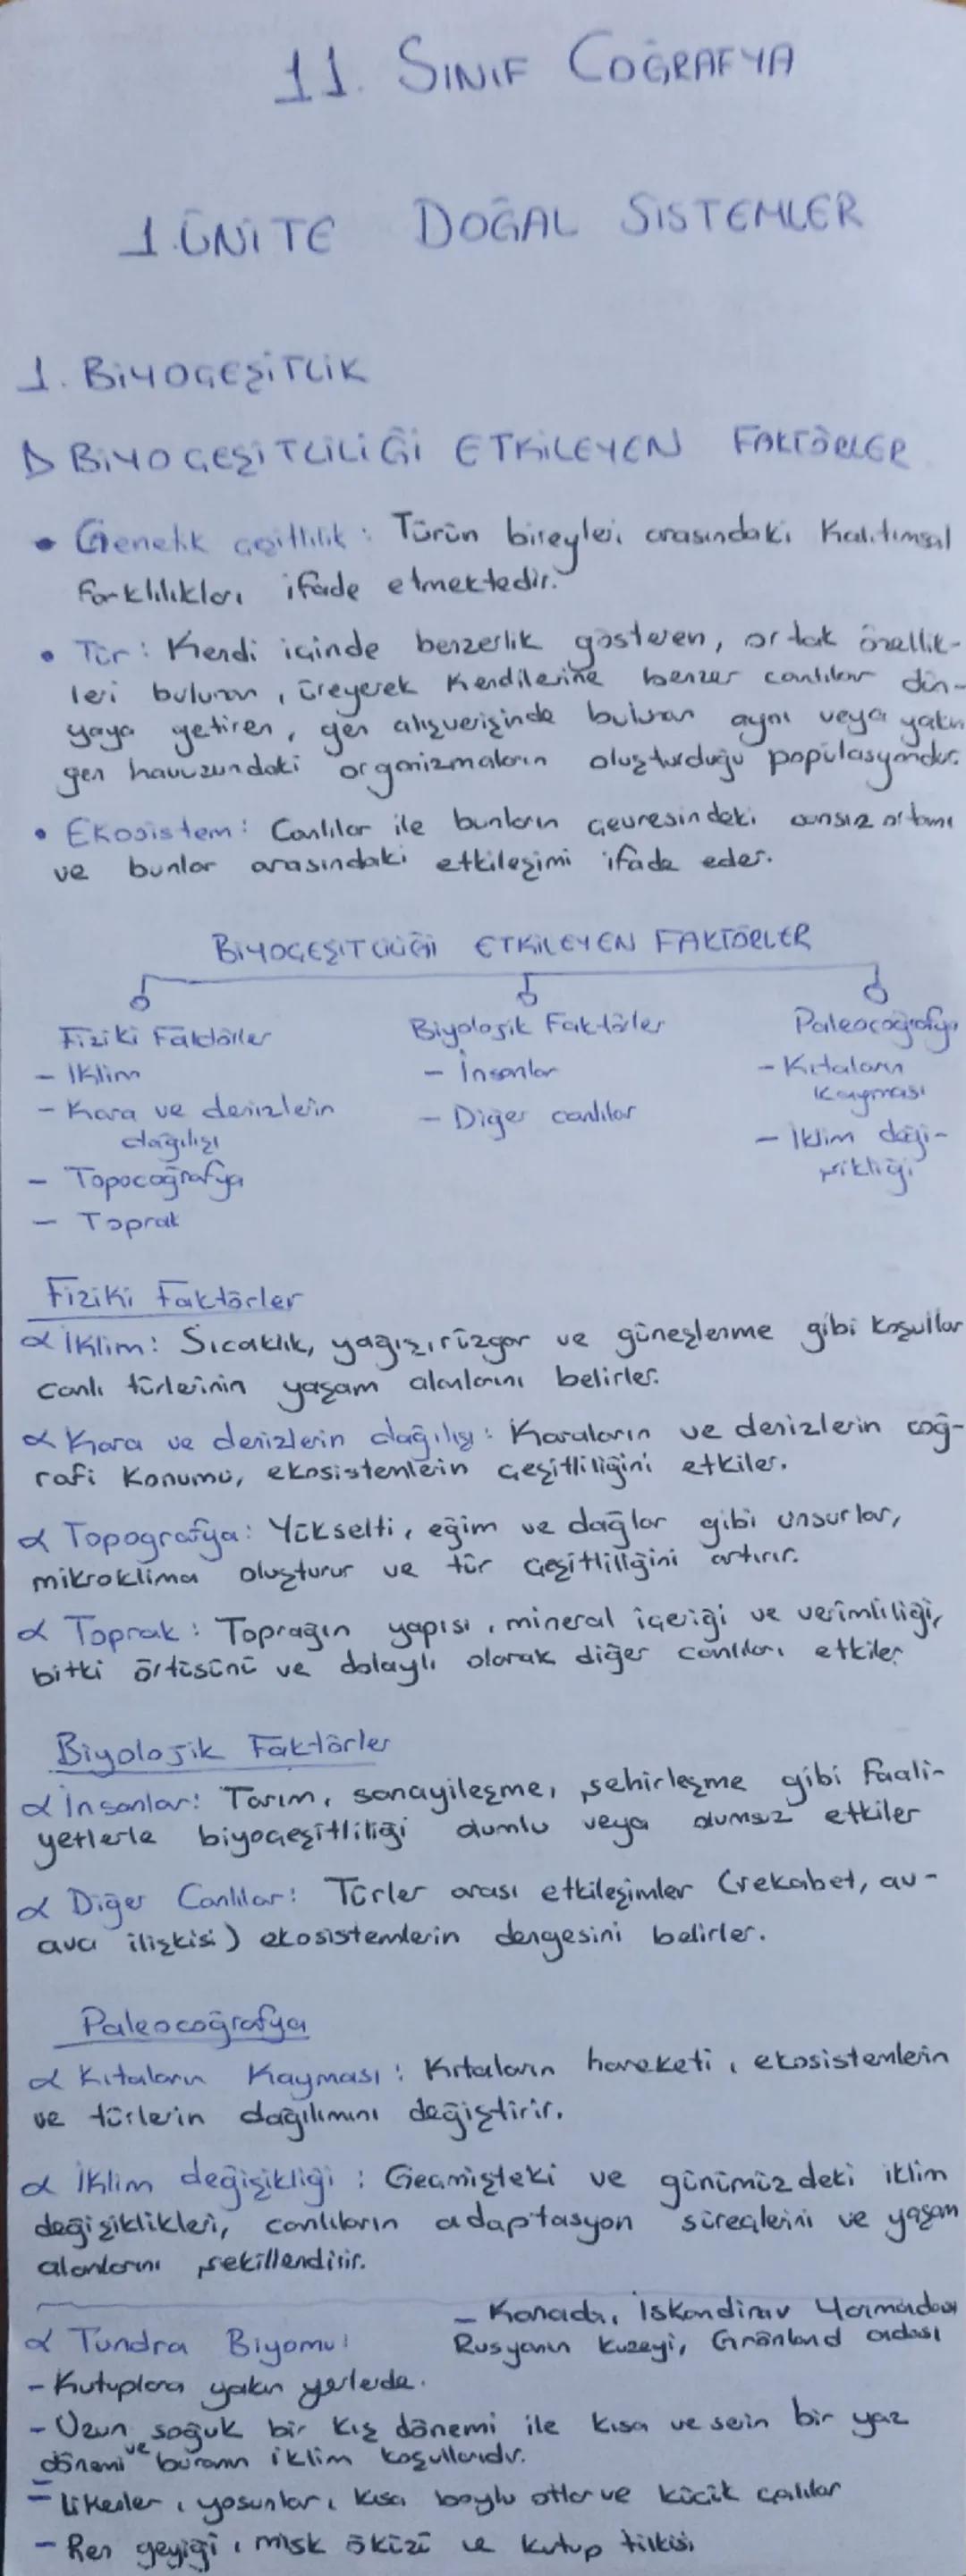 11. SINIF COĞRAFYA
1.ÜNİTE DOĞAL SİSTEMLER
1. BİYOÇEŞİTLİK
BİYOÇEŞİTLİLİĞİ ETKİLEYEN FAKTÖRLER
• Genetik çeşitlilik : Türün bireyleri arasındaki kalıtımsal
farklılıkları ifade etmektedir.
• Tür : Kendi içinde benzerlik gösteren, ortak özellik-
leri bulunan, üreyerek kendilerine benzer canlılar dün-
yaya getiren, gen alışverişinde bulunan aynı veya yakın
gen havuzundaki organizmaların oluşturduğu popülasyondur.
• Ekosistem : Canlılar ile bunların çevresindeki cansız ortamı
ve bunlar arasındaki etkileşimi ifade eder.
BİYOÇEŞİTLİLİĞİ ETKİLEYEN FAKTÖRLER
Fiziki Faktörler
- İklim
- Kara ve denizlerin
dağılışı
- Topocoğrafya
- Toprak
Biyolojik Faktörler
- İnsanlar
- Diğer canlılar
Paleocoğrafya
- Kıtaların
kayması
- İklim deği-
şikliği
Fiziki Faktörler
α İklim : Sıcaklık, yağış, rüzgar ve güneşlenme gibi koşullar
canlı türlerinin yaşam alanlarını belirler.
α Kara ve denizlerin dağılışı : Karaların ve denizlerin coğ-
rafi konumu, ekosistemlerin çeşitliliğini etkiler.
α Topografya : Yükselti, eğim ve dağlar gibi unsurlar,
mikroklima oluşturur ve tür çeşitliliğini artırır.
α Toprak : Toprağın yapısı, mineral içeriği ve verimliliği,
bitki örtüsünü ve dolaylı olarak diğer canlıları etkiler
Biyolojik Faktörler
α İnsanlar : Tarım, sanayileşme, şehirleşme gibi faali-
yetlerle biyoçeşitliliği olumlu veya olumsuz etkiler
α Diğer Canlılar : Türler arası etkileşimler (rekabet, av-
avcı ilişkisi) ekosistemlerin dengesini belirler.
Paleocoğrafya
α Kıtaların Kayması : Kıtaların hareketi, ekosistemlerin
ve türlerin dağılımını değiştirir.
α İklim değişikliği : Geçmişteki ve günümüzdeki iklim
değişiklikleri, canlıların adaptasyon süreçlerini ve yaşam
alanlarını şekillendirir.
- Kanada, İskandinav Yarımadası
α Tundra Biyomu : Rusyanın kuzeyi, Grönland adası
- Kutuplara yakın yerlerde.
- Uzun soğuk bir kış dönemi ile kısa ve serin bir yaz
dönemi ve buranın iklim koşullarıdır.
- Likenler, yosunlar, kısa boylu otlar ve küçük çalılar
- Ren geyiği, misk öküzü ve kutup tilkisi